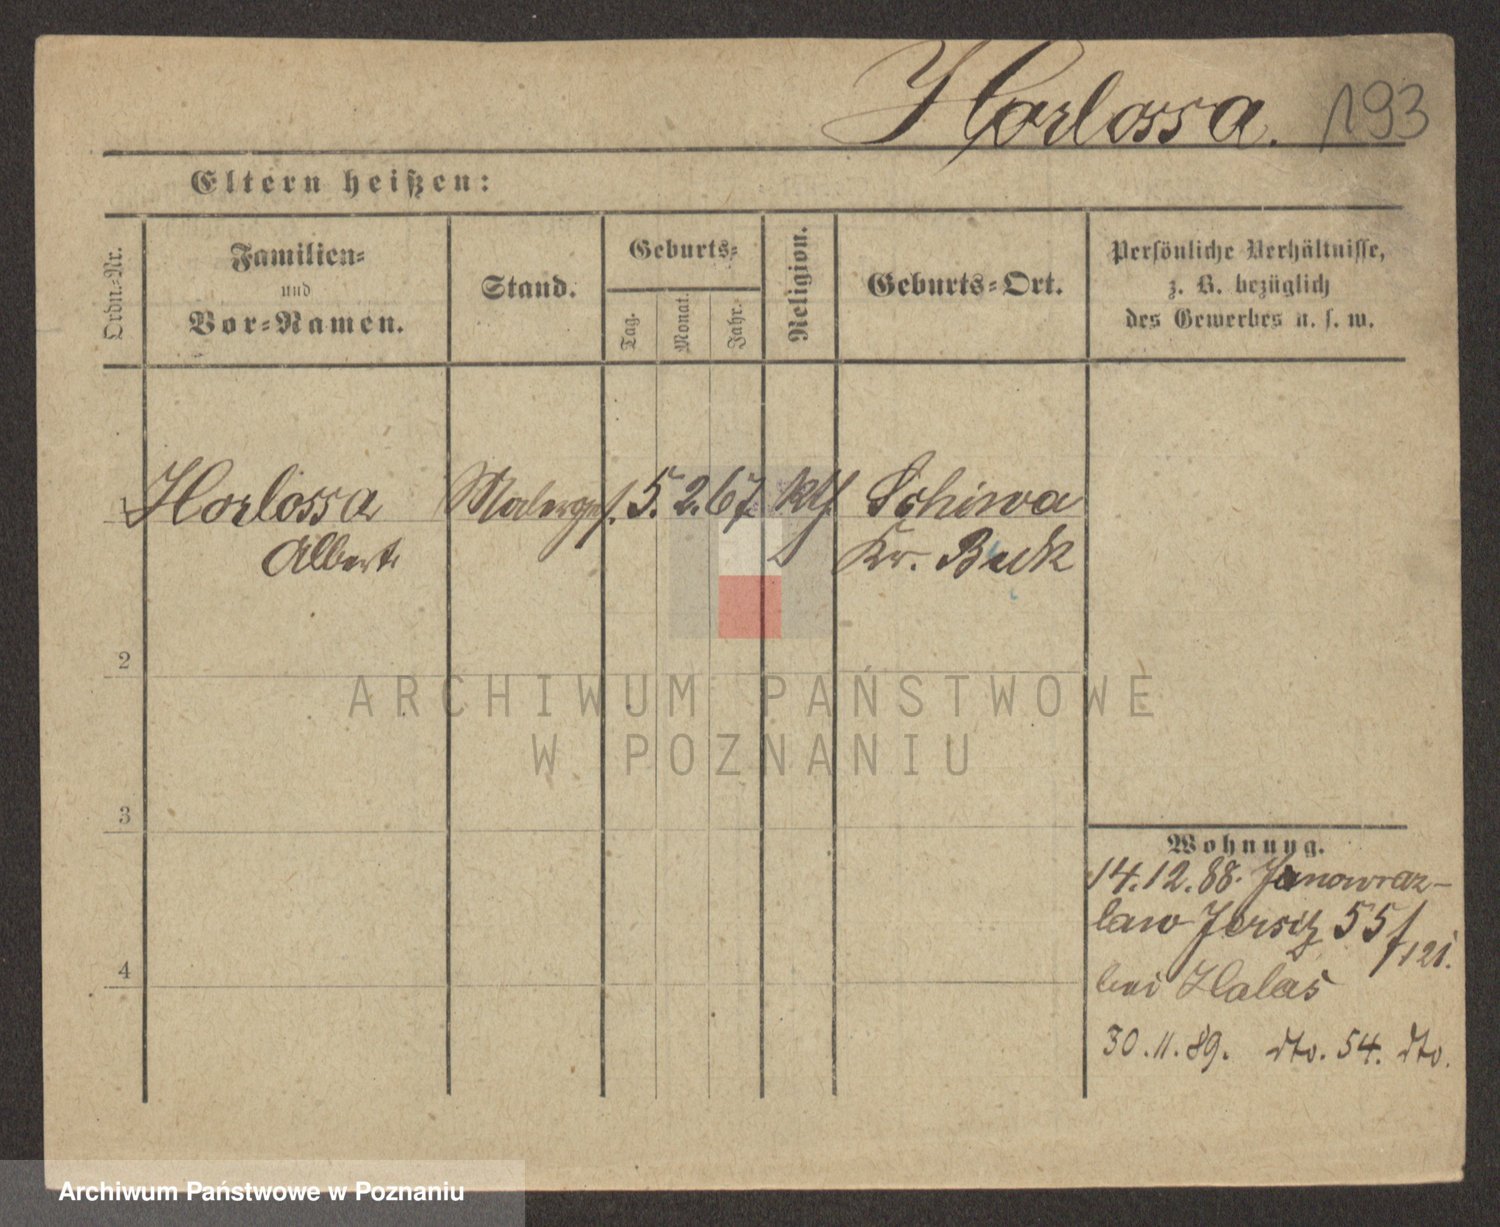 Horlossa. 193
Eltern heißen:
Ordn.-Nr.
Familien-
und
Vor-Namen.
Stand.
Geburts-
Tag.
Monat.
Jahr.
Religion.
Geburts-Ort.
Persönliche Verhältnisse,
z. B. bezüglich
des Gewerbes u. s. w.
1 Horlossa Malergeh. 5. 2. 67 kth Schiwa
Albert Kr. Buck
2
ARCHIWUM PAŃSTWOWE
W POZNANIU
3
4
Wohnung.
14.12.88. Janowraz-
law Jersitz 55/121.
bei Halas
30.11.89. dto. 54. dto.
Archiwum Państwowe w Poznaniu